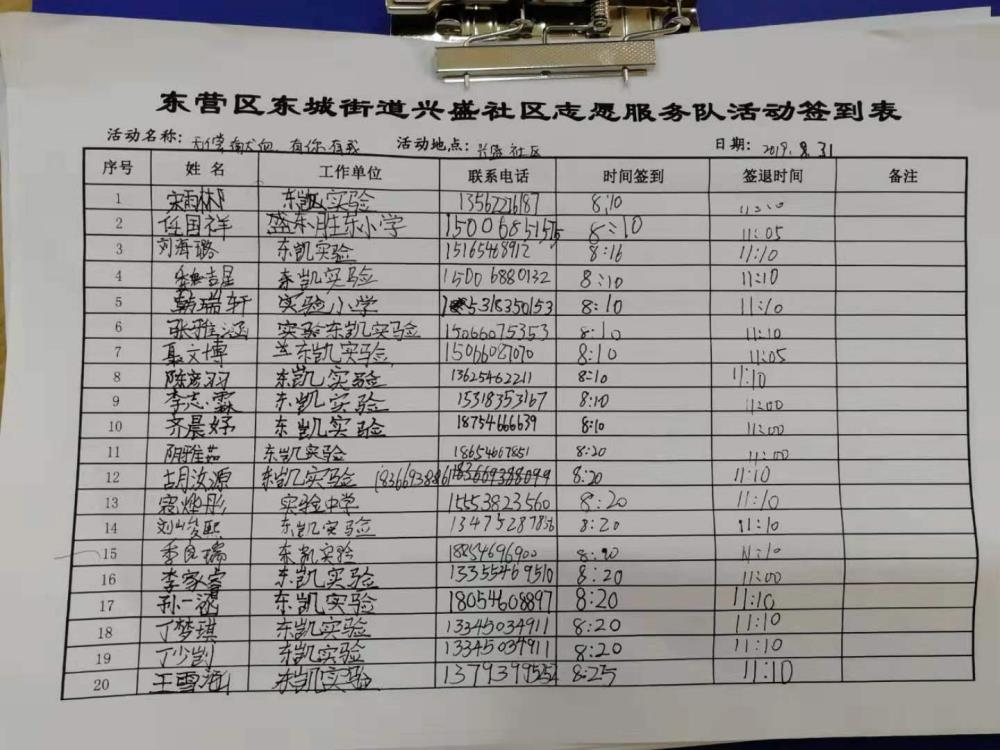 东营区东城街道兴盛社区志愿服务队活动签到表
活动名称：无偿献血、有你有我 活动地点：兴盛社区 日期：2019.8.31
序号 姓名 工作单位 联系电话 时间签到 签退时间 备注
1 宋雨林 东凯实验 13562226187 8:10
2 任国祥 盛东胜东小学 8:10 11:05
3 刘海璐 东凯实验 15165468912 8:16 11:10
4 吉星 东凯实验 15006880132 8:10 11:10
5 韩瑞轩 实验小学 15318350153 8:10 11:10
6 张雅涵 实验东凯实验 15066075353 8:10 11:10
7 聂文博 东凯实验 15066087070 8:10 11:05
8 陈彦羽 东凯实验 13625462211 8:10 11:10
9 李志霖 东凯实验 15318353167 8:10 11:00
10 齐晨妤 东凯实验 18754666639 8:10 11:00
11 阴雅茹 东凯实验 18654667851 8:20 11:00
12 胡汝源 东凯实验 8:20 11:10
13 寇烨彤 实验中学 15553823560 8:20 11:10
14 刘峻熙 东凯实验 13475287856 8:20 11:10
15 季良瑞 东凯实验 18854696900 8:20 11:10
16 李家睿 东凯实验 13355469510 8:20 11:00
17 孙一涵 东凯实验 18054608897 8:20 11:10
18 丁梦琪 东凯实验 13345034911 8:20 11:10
19 丁少剀 东凯实验 13345034911 8:20 11:10
20 王雪涵 东凯实验 8:25 11:10